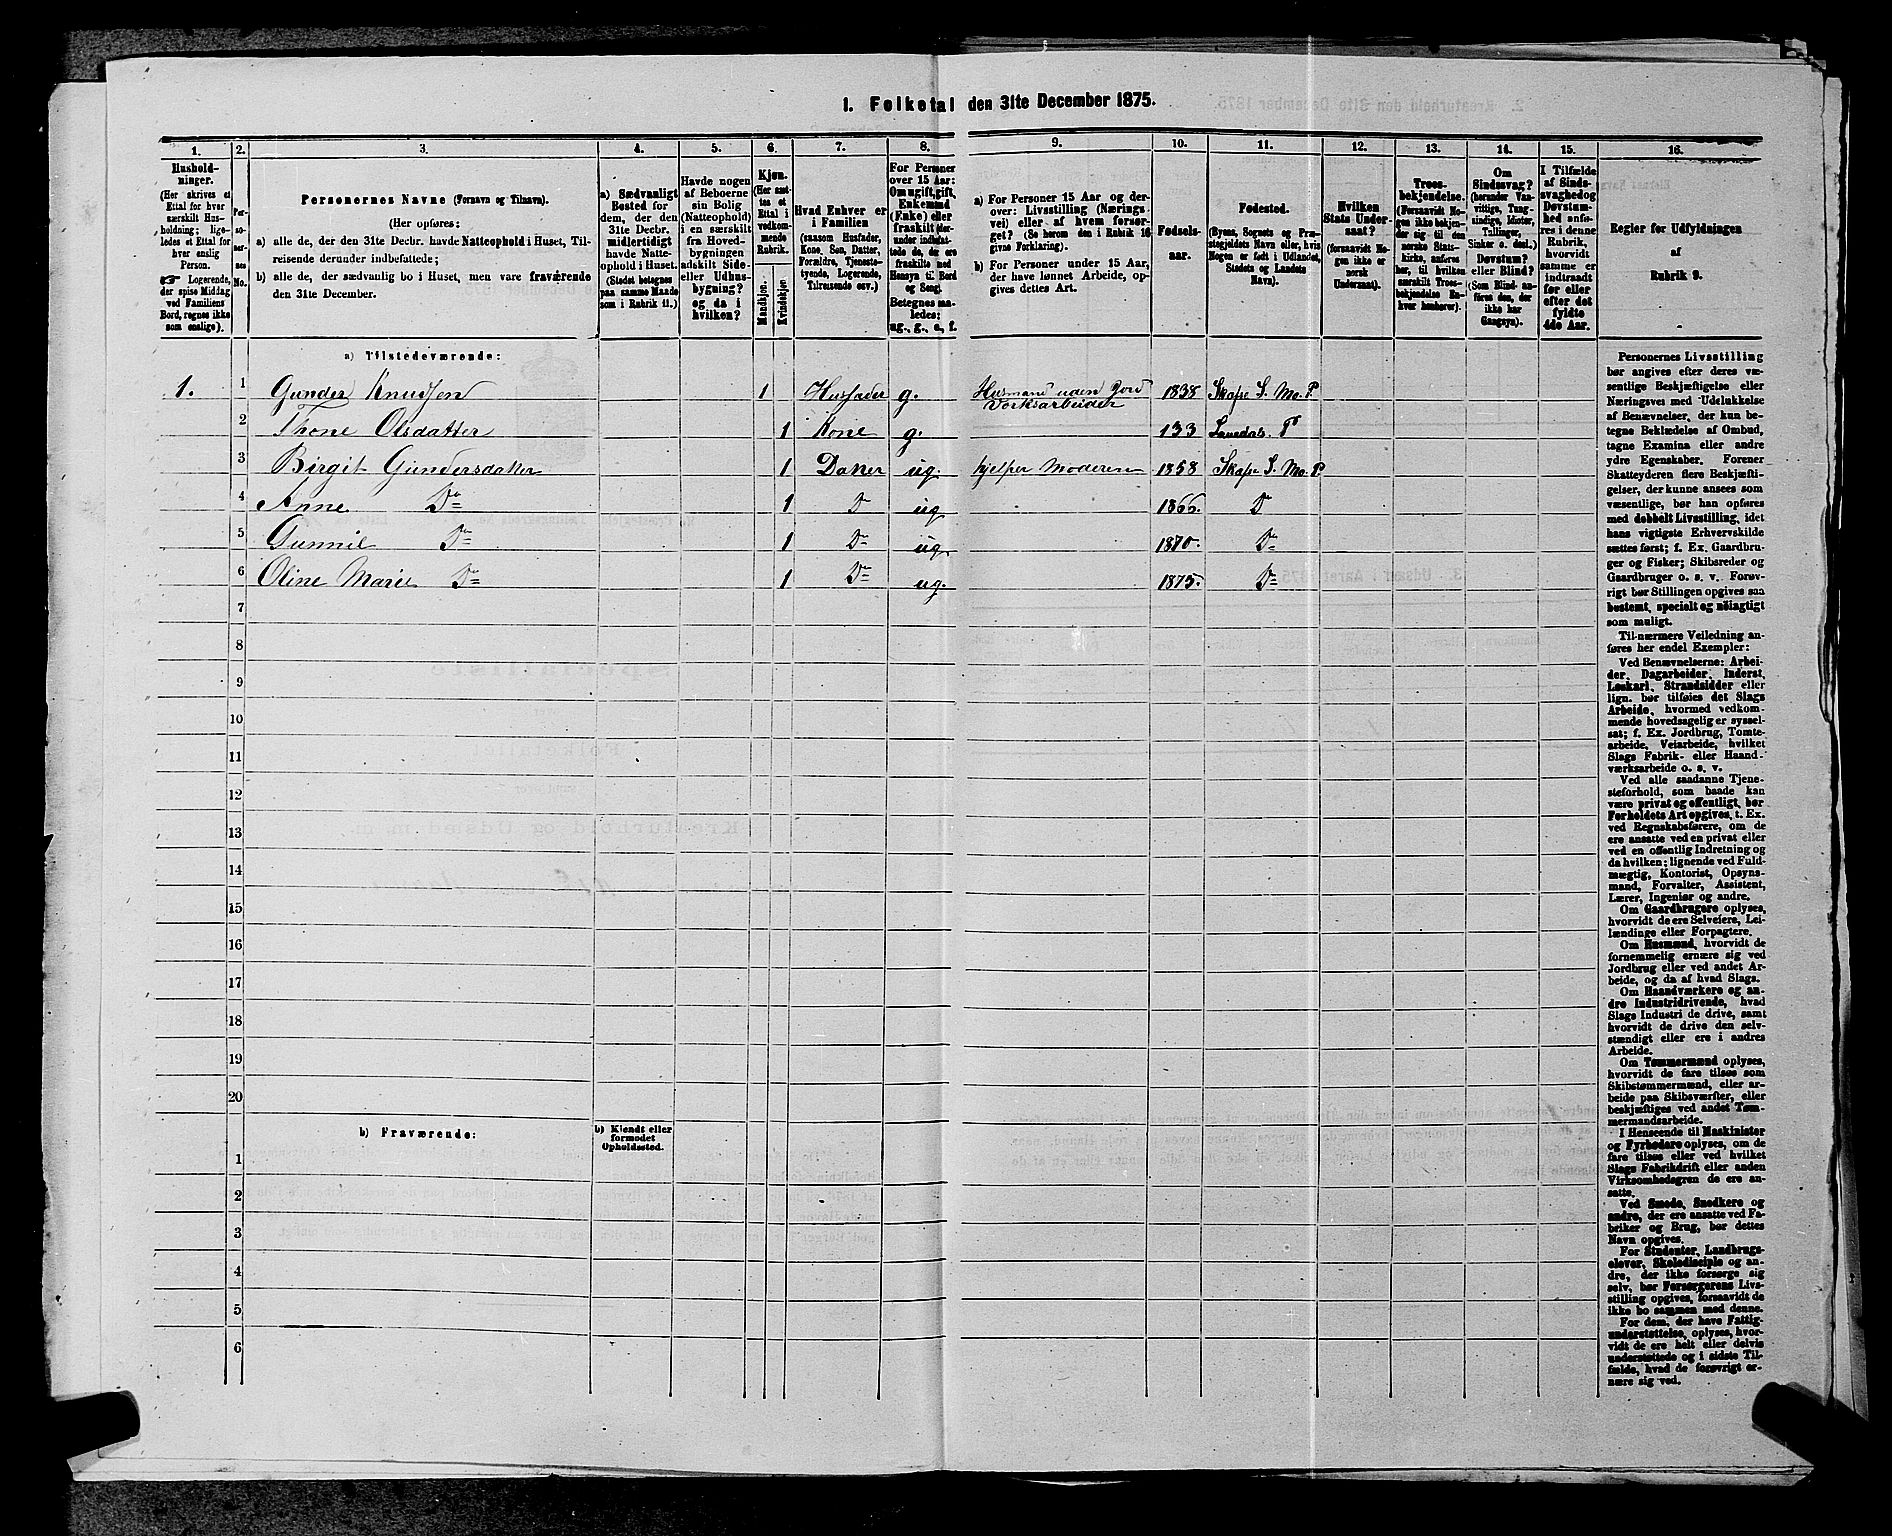 1. Folketal den 31te December 1875.
1. 2. 3. 4. 5. 6. 7. 8. 9. 10. 11. 12. 13. 14. 15. 16.
Hushold-
ninger.
(Her skrives et
Ettal for hver
særskilt Hus-
holdning; lige-
ledes et Ettal for
hver enslig
Person.
☞ Logerende,
der spise Middag
ved Familiens
Bord, regnes ikke
som enslige).
Per-
soner-
nes
No.
Personernes Navne (Fornavn og Tilnavn).
(Her opføres:
a) alle de, der den 31te Decbr. havde Natteophold i Huset, Til-
reisende derunder indbefattede;
b) alle de, der sædvanlig bo i Huset, men vare fraværende
den 31te December.
a) Sædvanligt
Bosted for
dem, der den
31te Decbr.
midlertidigt
havde Natte-
ophold i Huset.
(Stedet betegnes
paa samme Maade
som i Rubrik 11.)
Havde nogen
af Beboerne
sin Bolig
(Natteophold)
i en særskilt
fra Hoved-
bygningen
adskilt Side-
eller Udhus-
bygning?
og da i
hvilken?
Kjøn.
(Her sæt-
tes et
Ettal i
vedkom-
mende
Rubrik.
Mandkjøn.
Kvindekjøn
Hvad Enhver er
i Familien
(saasom Husfader,
Kone, Søn, Datter,
Forældre, Tjeneste-
tyende, Logerende,
Tilreisende osv.)
For Personer
over 15 Aar:
Om ugift, gift,
Enkemand
(Enke) eller
fraskilt (der-
under indbefat-
tede de, der ere
fraskilte med
Hensyn til Bord
og Seng).
Betegnes saa-
ledes:
ug., g., e., f.
a) For Personer 15 Aar og der-
over: Livsstilling (Nærings-
vei) eller af hvem forsør-
get? (Se herom den i Rubrik 16
givne Forklaring).
b) For Personer under 15 Aar,
der have lønnet Arbeide, op-
gives dettes Art.
Fødsels-
aar.
Fødested.
(Byens, Sognets og Præ-
stegjeldets Navn eller, hvis
Nogen er født i Udlandet,
Stedets og Landets
Navn).
Hvilken
Stats Under-
saat?
(forsaavidt No-
gen ikke er
norsk
Undersaat).
Troes-
bekjendelse.
(Forsaavidt No-
gen ikke bekjen-
der sig til den
norske Stats-
kirke, anføres
her, til hvilken
særskilt Troes-
bekjendelse En-
hver henhører).
Om
Sindssvag?
(herunder Van-
vittige, Tung-
sindige, Idioter,
Tullinger,
Sinker o. desl.)
Døvstum?
eller Blind?
(Som Blind an-
føres den, der
ikke har
Gangsyn).
I Tilfælde
af Sinds-
svaghed og
Døvstum-
hed anfø-
res i denne
Rubrik,
hvorvidt
samme er
indtraadt
før eller
efter det
fyldte
4de Aar.
Regler for Udfyldningen
af
Rubrik 9.
a) Tilstedeværende:
1. 1 Gunder Knudsen 1 Husfader g. Husmand uden Jord 1838 Skafse S. Mo. P.
Verksarbeider
2 Thone Olsdatter 1 Kone g. 133 Laurdals P
3 Birgit Gundersdatter 1 Datter ug. hjelper Moderen 1858 Skafse S. Mo. P.
4 Anne Do 1 Do ug 1866. Do
5 Gunnil Do 1 Do ug. 1870. Do
6 Oline Marie Do 1 Do ug. 1875. Do
7
8
9
10
11
12
13
14
15
16
17
18
19
20
b) Fraværende:
b) Kjendt eller
formodet
Opholdssted.
1
2
3
4
5
6
Personernes Livsstilling
bør angives efter deres væ-
sentlige Beskjæftigelse eller
Næringsvei med Udelukkelse
af Benævnelser, der kun be-
tegne Beklædelse af Ombud,
tagne Examina eller andre
ydre Egenskaber. Forener
Skatteyderen flere Beskjæfti-
gelser, der kunne ansees som
væsentlige, bør han opføres
med dobbelt Livsstilling, idet
hans vigtigste Erhvervskilde
sættes først; f. Ex. Gaardbru-
ger og Fisker; Skibsreder og
Gaardbruger o. s. v. Forøv-
rigt bør Stillingen opgives saa
bestemt, specielt og nøiagtigt
som muligt.
Til nærmere Veiledning an-
føres her endel Exempler:
Ved Benævnelserne: Arbei-
der, Dagarbeider, Inderst,
Løskarl, Strandsidder eller
lign. bør tilføies det Slags
Arbeide, hvormed vedkom-
mende hovedsagelig er syssel-
sat; f. Ex. Jordbrug, Tomte-
arbeide, Veiarbeide, hvilket
Slags Fabrik- eller Haand-
værksarbeide o. s. v.
Ved alle saadanne Tjene-
steforhold, som baade kan
være privat og offentligt, bør
Forholdets Art opgives, t. Ex.
ved Regnskabsførere, om de
ere ansatte ved en privat eller
ved en offentlig Indretning og
da hvilken; lignende ved Fuld-
mægtig, Kontorist, Opsyns-
mand, Forvalter, Assistent,
Lærer, Ingeniør og andre.
Om Gaardbrugere oplyses,
hvorvidt de ere Selveiere, Lei-
lændinge eller Forpagtere.
Om Husmænd, hvorvidt de
fornemmelig ernære sig ved
Jordbrug eller ved andet Ar-
beide, og da af hvad Slags.
Om Haandværkere og an-
dre Industridrivende, hvad
Slags Industri de drive, samt
hvorvidt de drive den selv-
stændigt eller ere i andres
Arbeide.
Om Tømmermænd oplyses,
hvorvidt de fare tilsøs som
Skibstømmermænd, eller ar-
beide paa Skibsværfter, eller
beskjæftiges ved andet Tøm-
mermandsarbeide.
I Henseende til Maskinister
og Fyrbødere oplyses, om de
fare tilsøs eller ved hvilket
Slags Fabrikdrift eller anden
Virksomhedsgren de ere an-
satte.
Ved Smede, Snedkere og
andre, der ere ansatte ved Fa-
briker og Brug, bør dettes
Navn opgives.
For Studenter, Landbrugs-
elever, Skoledisciple og an-
dre, der ikke forsørge sig
selv, bør Forsørgerens Livs-
stilling opgives, forsaavidt de
ikke bo sammen med denne.
For dem, der have Fattig-
understøttelse, oplyses, hvor-
vidt de ere helt eller delvis
understøttede og i sidste Til-
fælde, hvad de forøvrigt er-
nære sig ved.